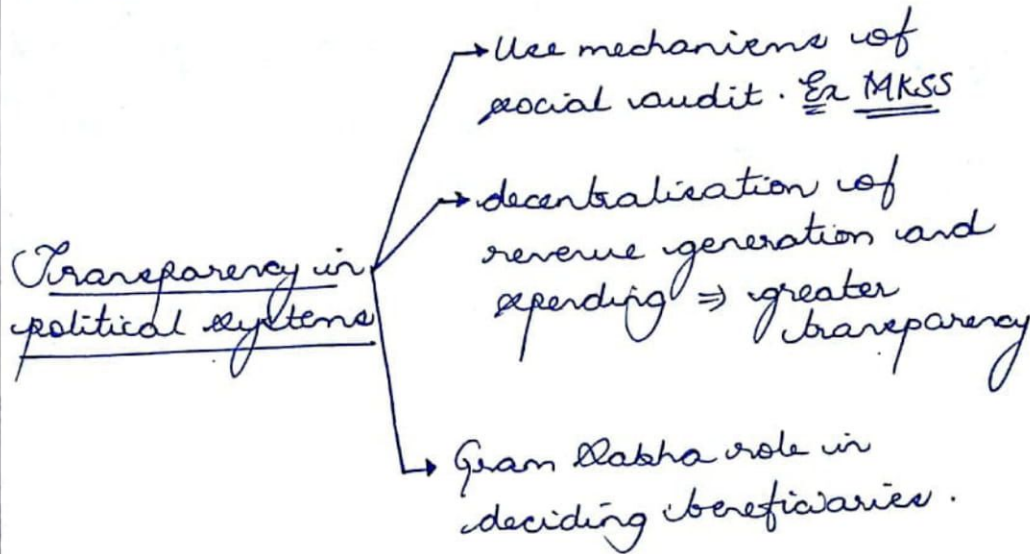 Transparency in
political systems
→ Use mechanisms of
social audit. Ex MKSS
→ decentralisation of
revenue generation and
spending ⇒ greater
transparency
→ Gram Sabha role in
deciding beneficiaries.